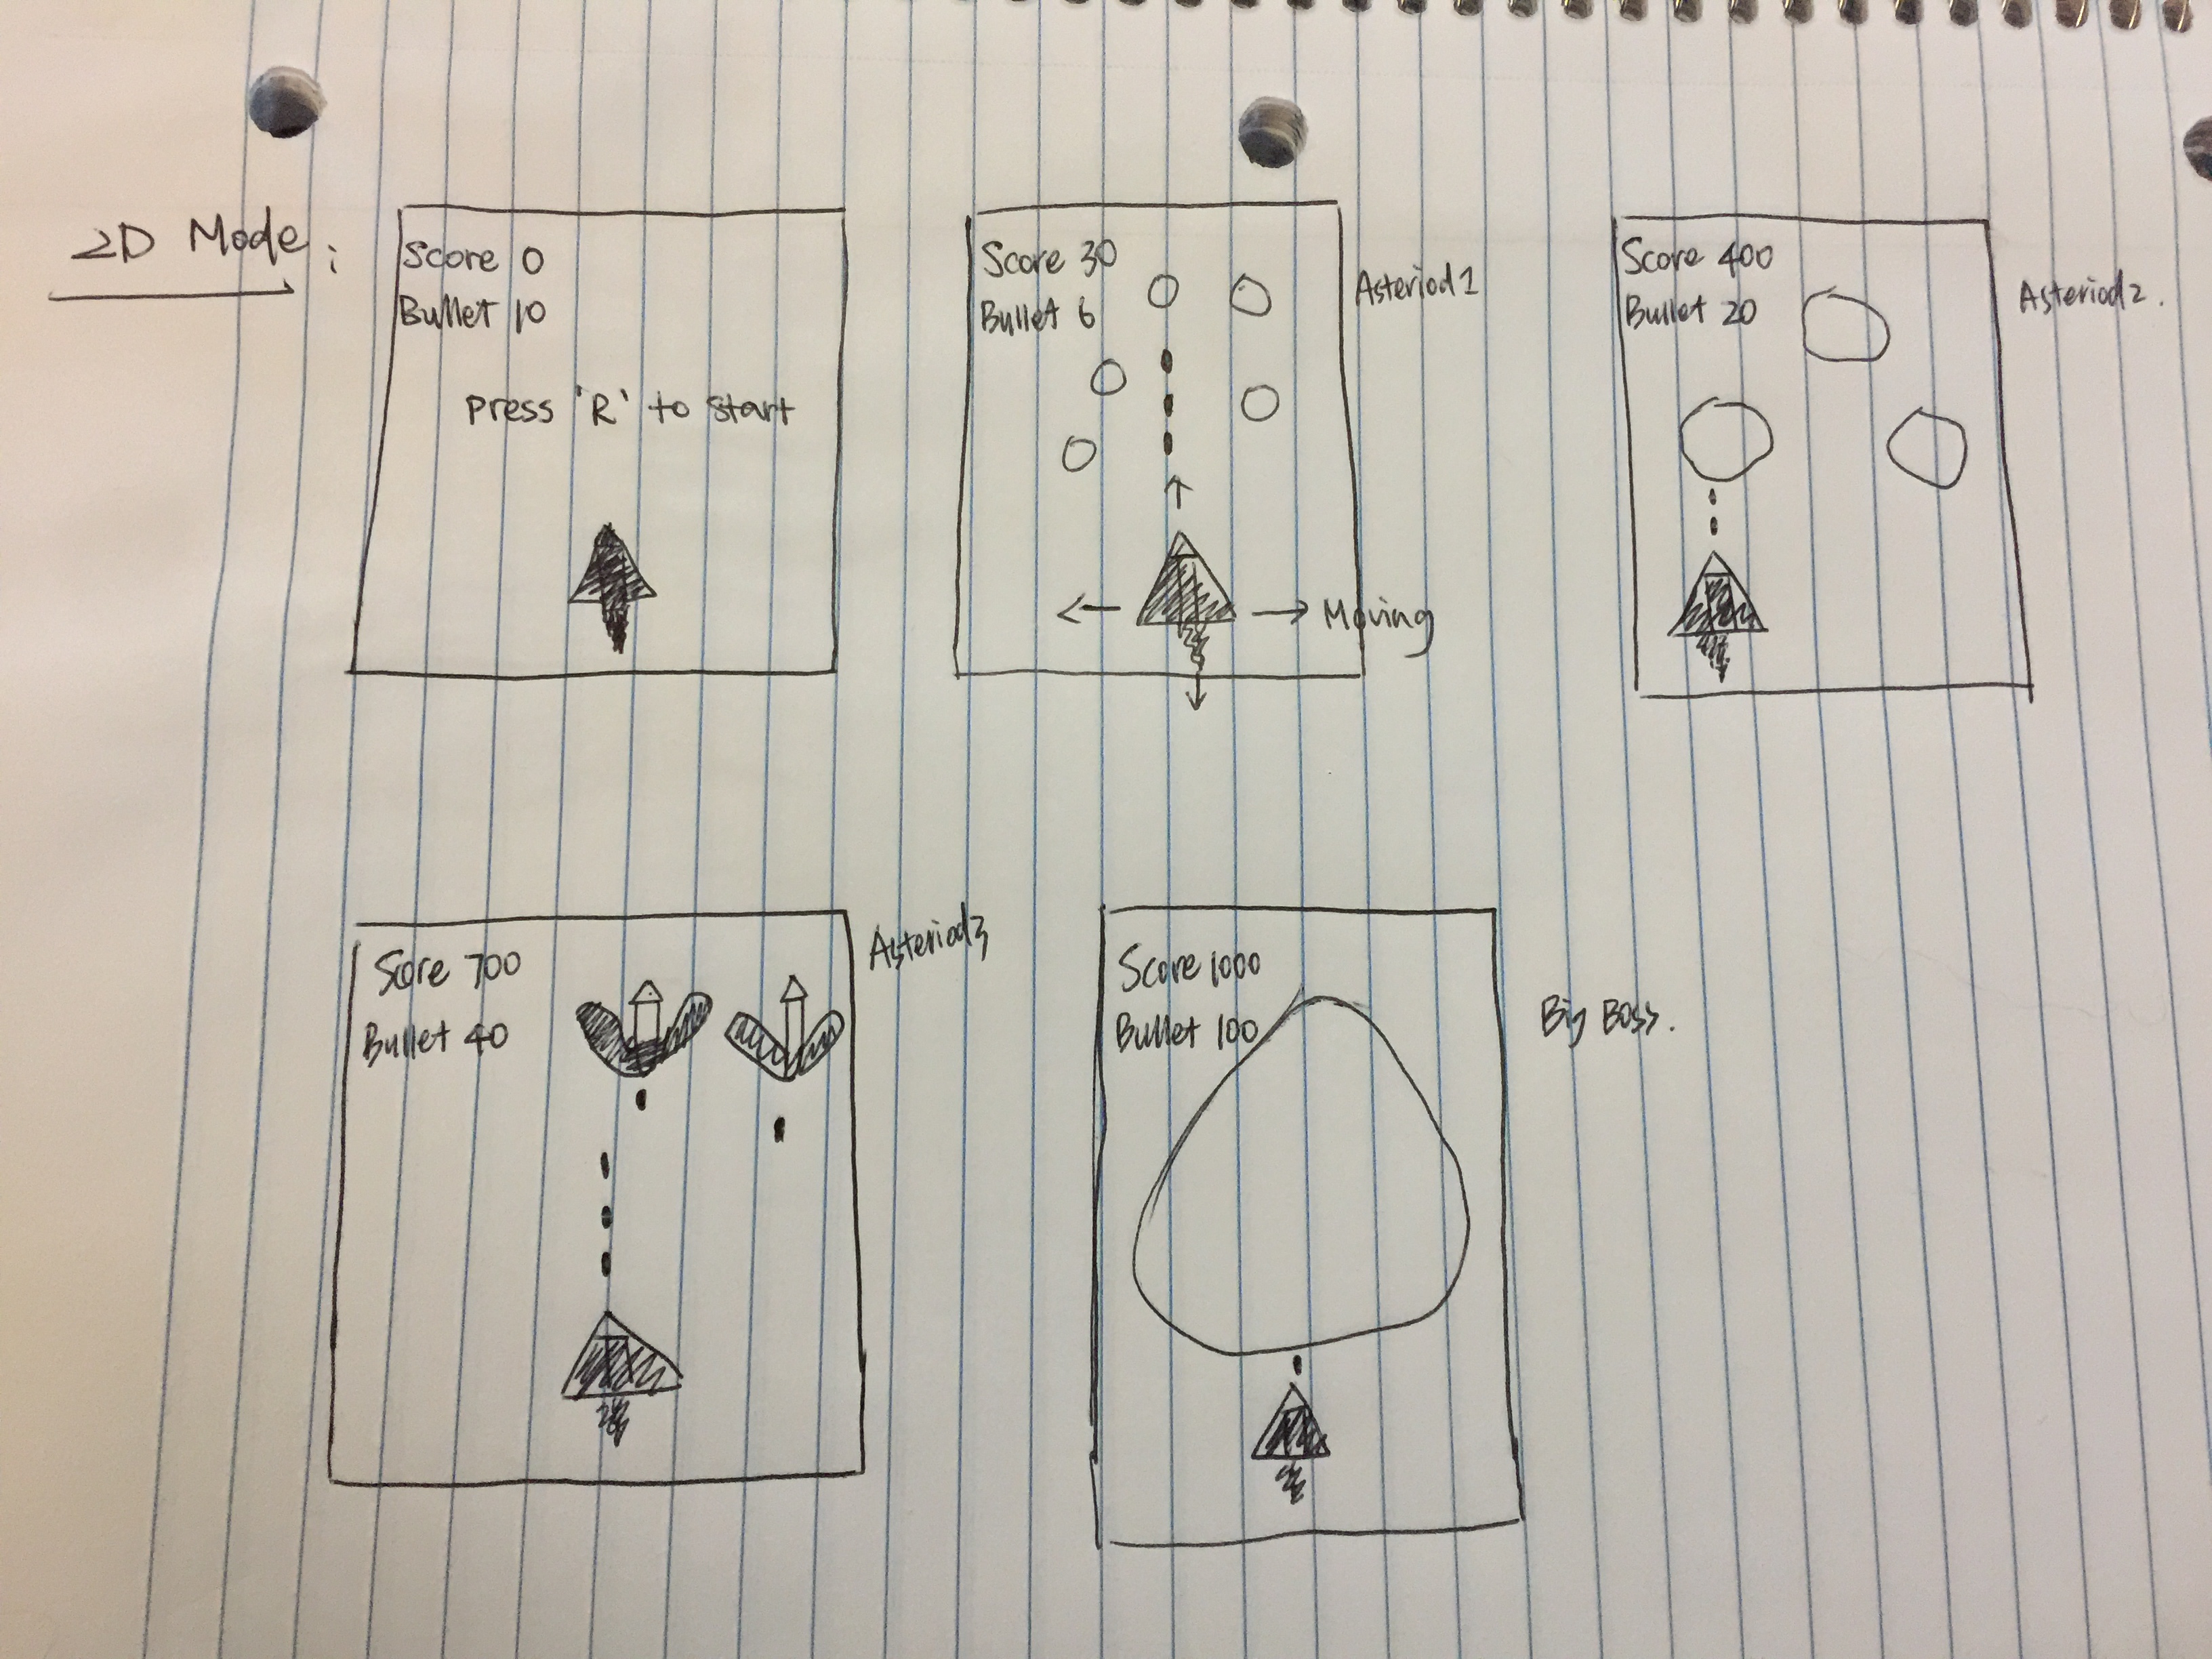 2D Mode:
Score 0
Bullet 10
press 'R' to start
Score 30
Bullet 6
Asteriod1
Moving
Score 400
Bullet 20
Asteriod2.
Score 700
Bullet 40
Asteriod3
Score 1000
Bullet 100
Big Boss.